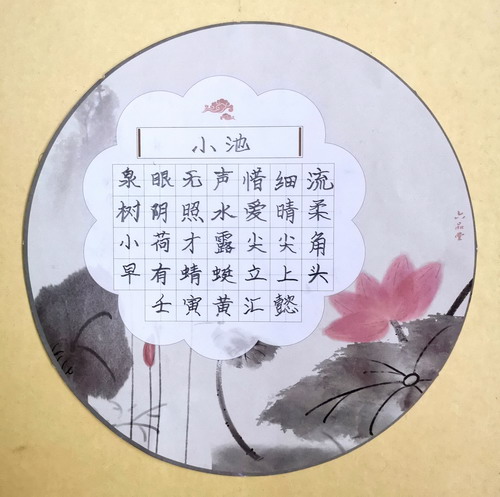 小池
泉眼无声惜细流
树阴照水爱晴柔
小荷才露尖尖角
早有蜻蜓立上头
壬寅黄汇懿
六品堂